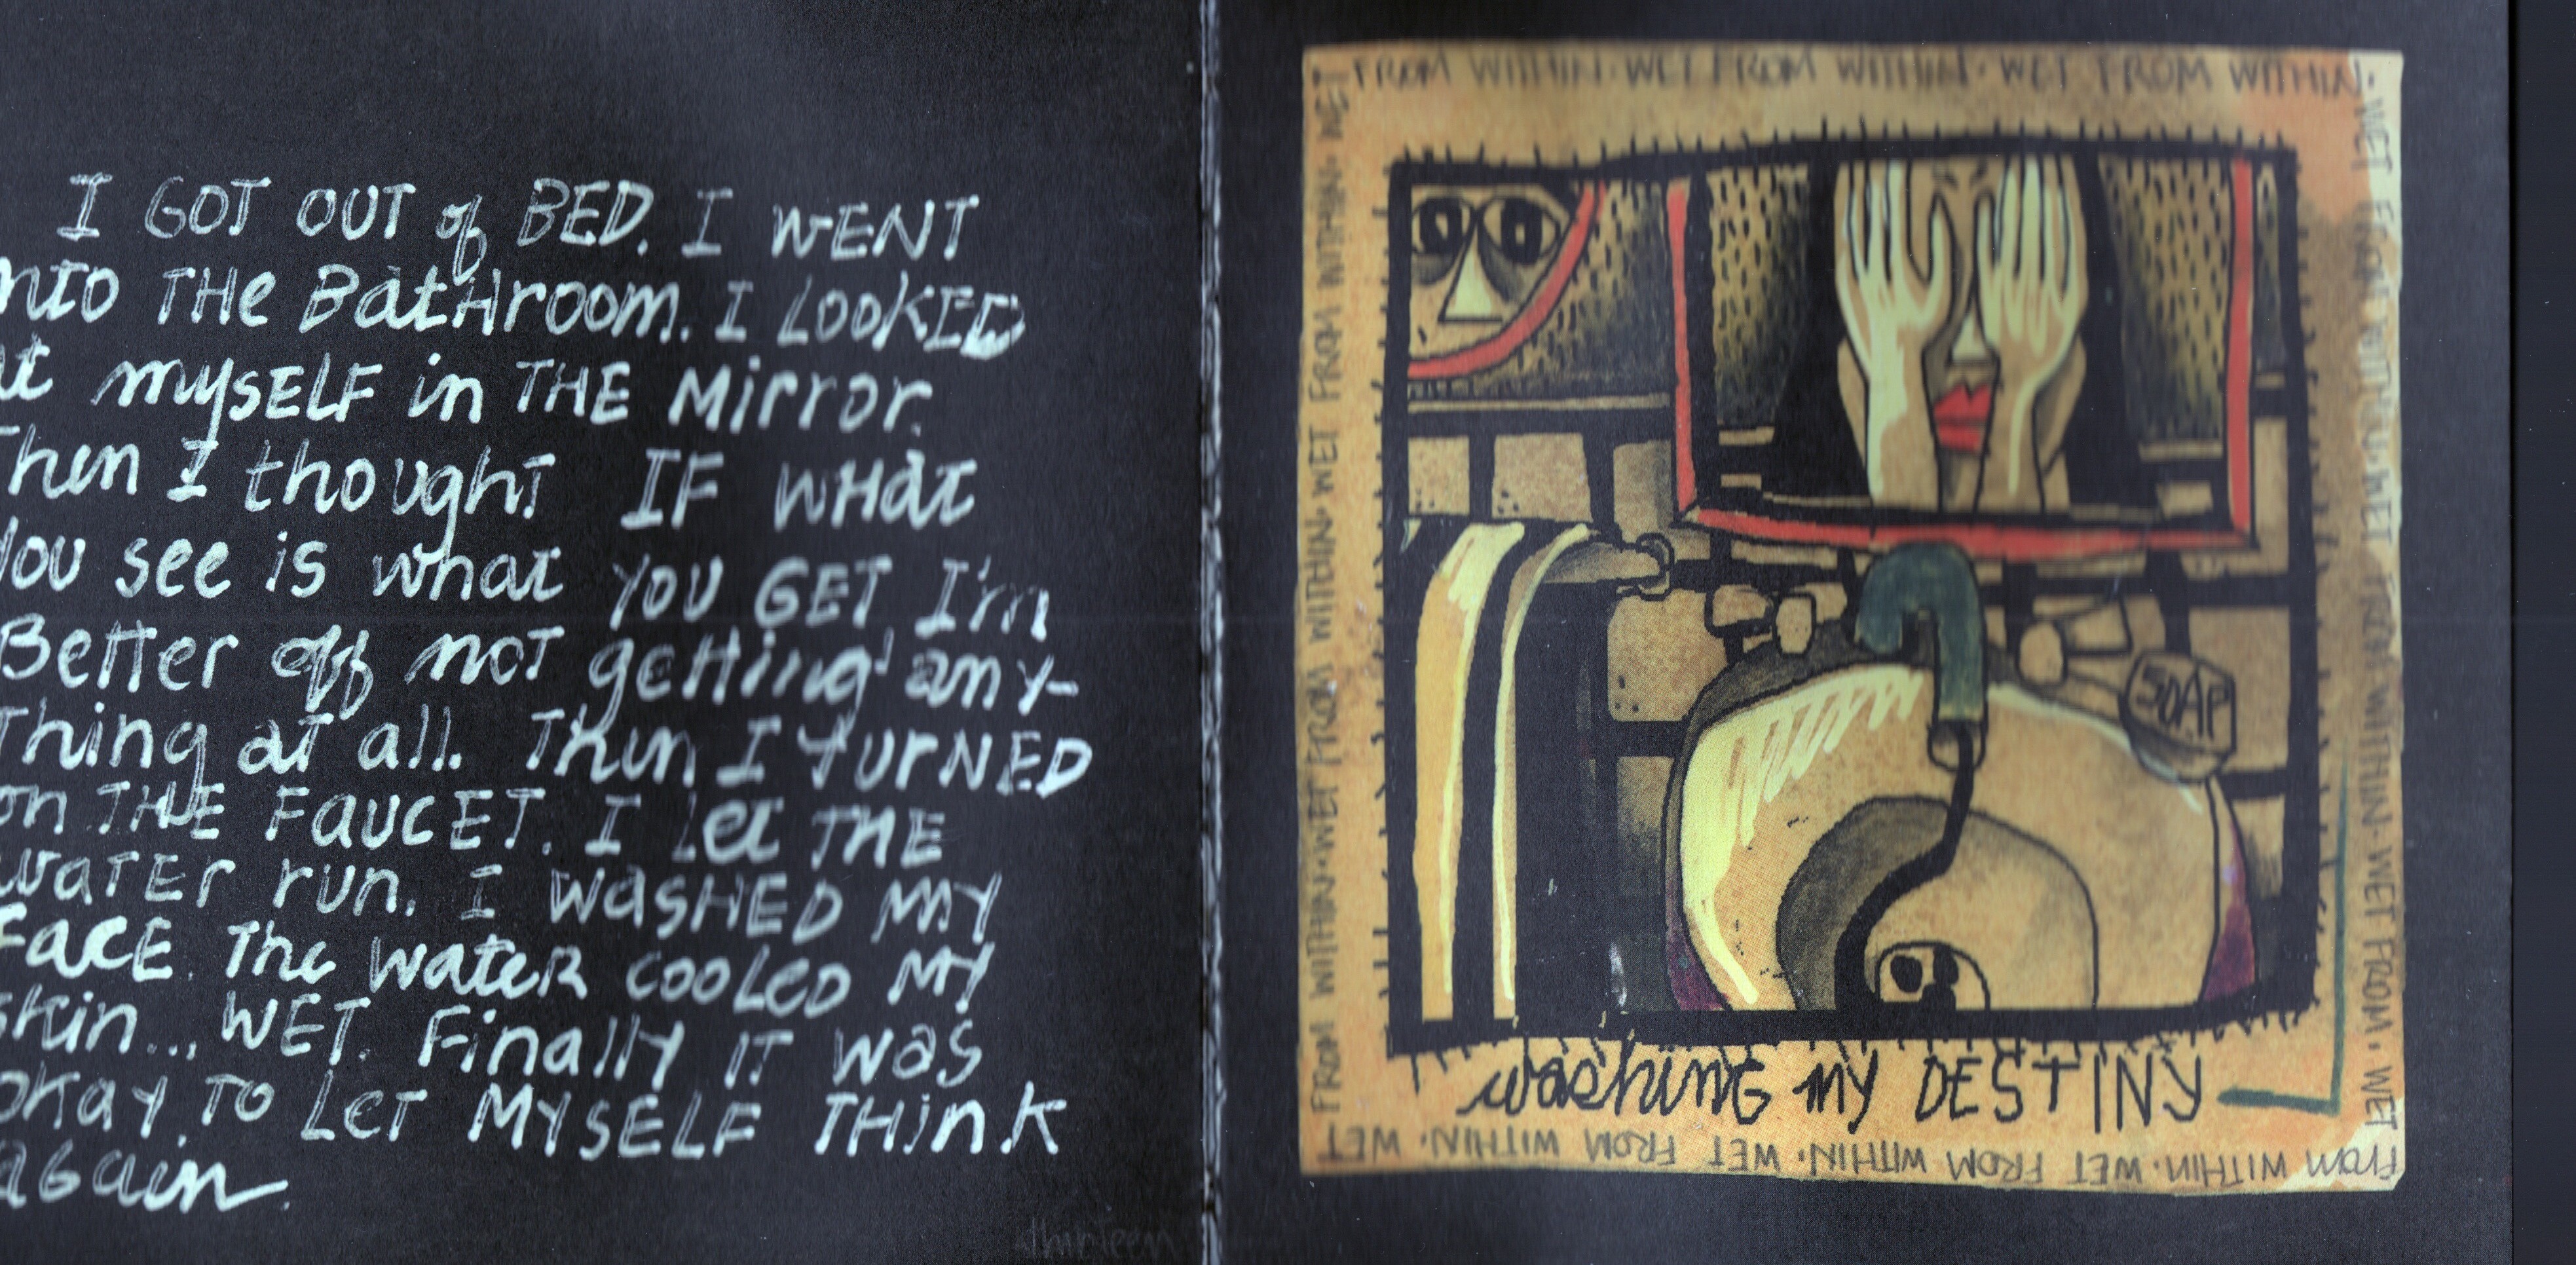 I GOT OUT of BED. I WENT
nto THe BatHroom. I LOOKED
at mysELF in THE Mirror.
Then I thought IF WHat
You see is what YOU GET I'm
Better off not getting any-
Thing at all. Then I TURNED
on THE FAUCET. I LET THE
WaTEr run. I WASHED MY
FacE. The WateR COOLED MY
skin... WET. Finally IT was
okay TO LET MYSELF THINK
aGain.
thirteen
FROM WITHIN. WET FROM WITHIN. WET FROM WITHIN.
WET FROM WITHIN. WET FROM WITHIN. WET FROM. WET
FROM WITHIN. WET FROM WITHIN. WET FROM WITHIN. WET FROM WITHIN. WET
SOAP
washinG my DESTINY
From WITHIN. WET. WITHIN. WET FROM WITHIN. WET FROM WITHIN. WET